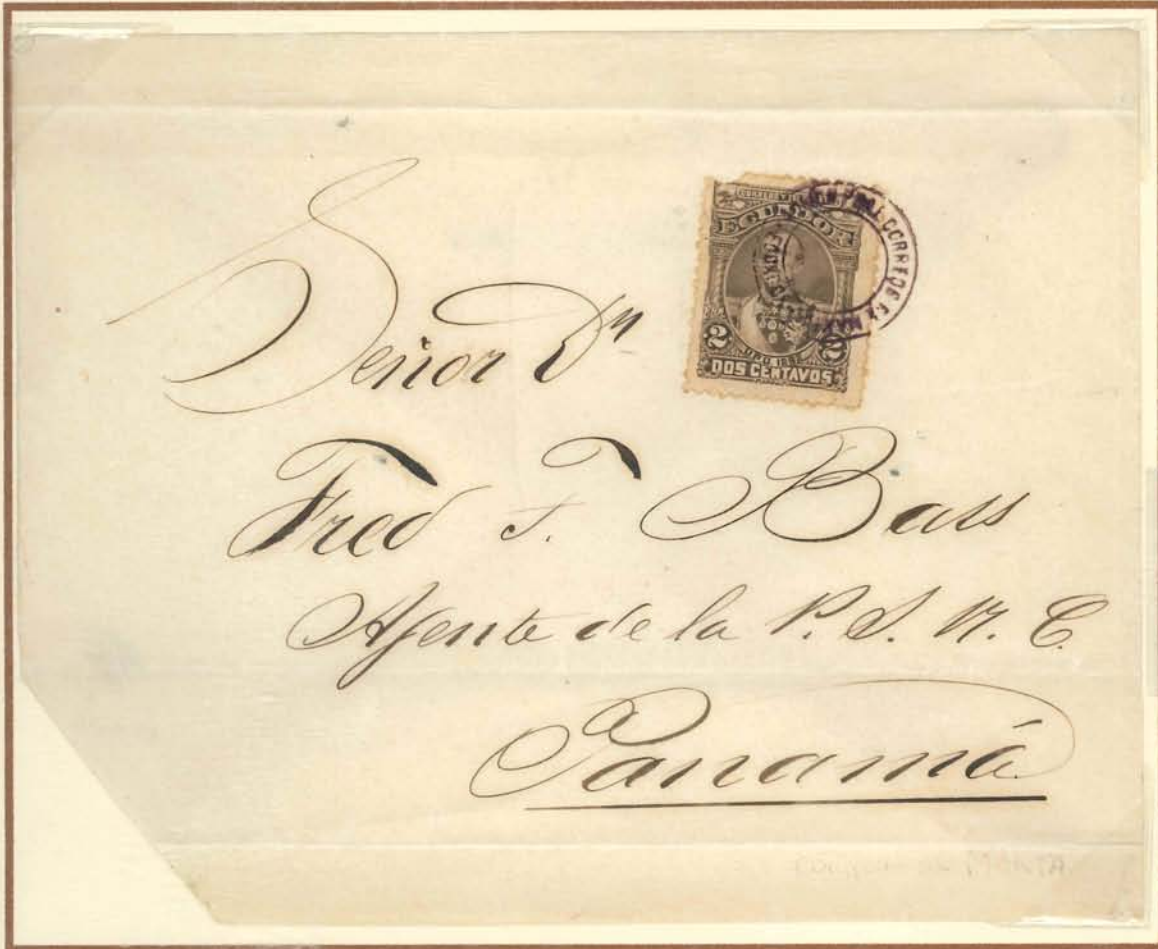 ECUADOR
2 2
DOS CENTAVOS
Señor Dn
Fred T. Bass
Ajente de la P. S. N. C.
Panamá
MANTA